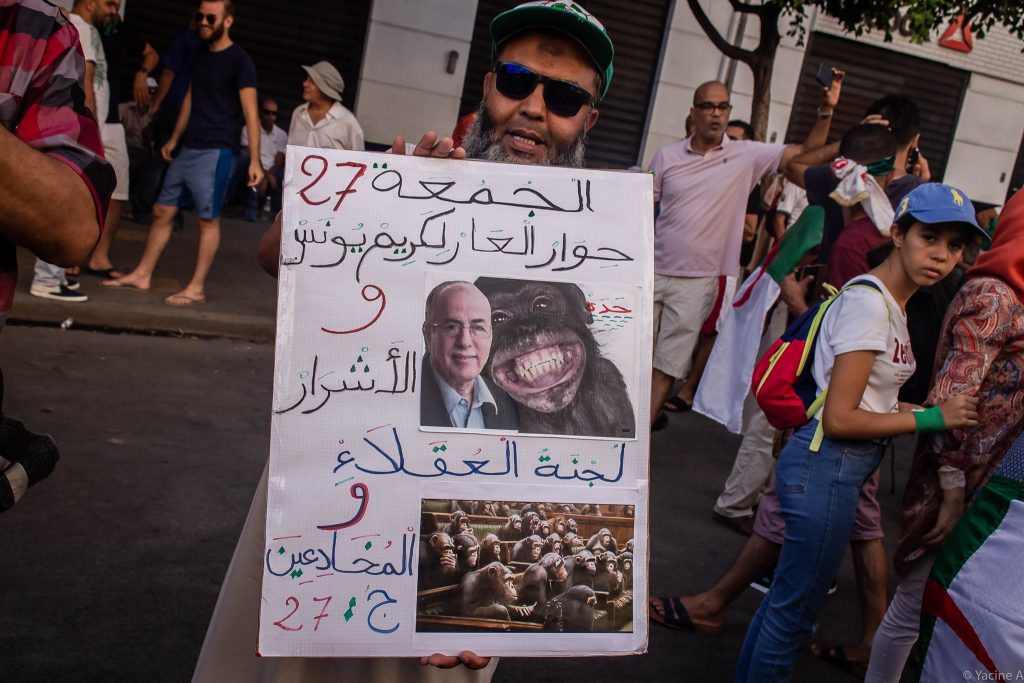 الجُمْعَة 27
حِوَارْ العَارْ لِكَرِيمْ يُونَسْ
و
جَدَهْ
الأَشْرَارْ
لُجْنَةُ العُقَلاَءْ
و
المُخَادِعِينَ
ج: 27
26
© Yacine A